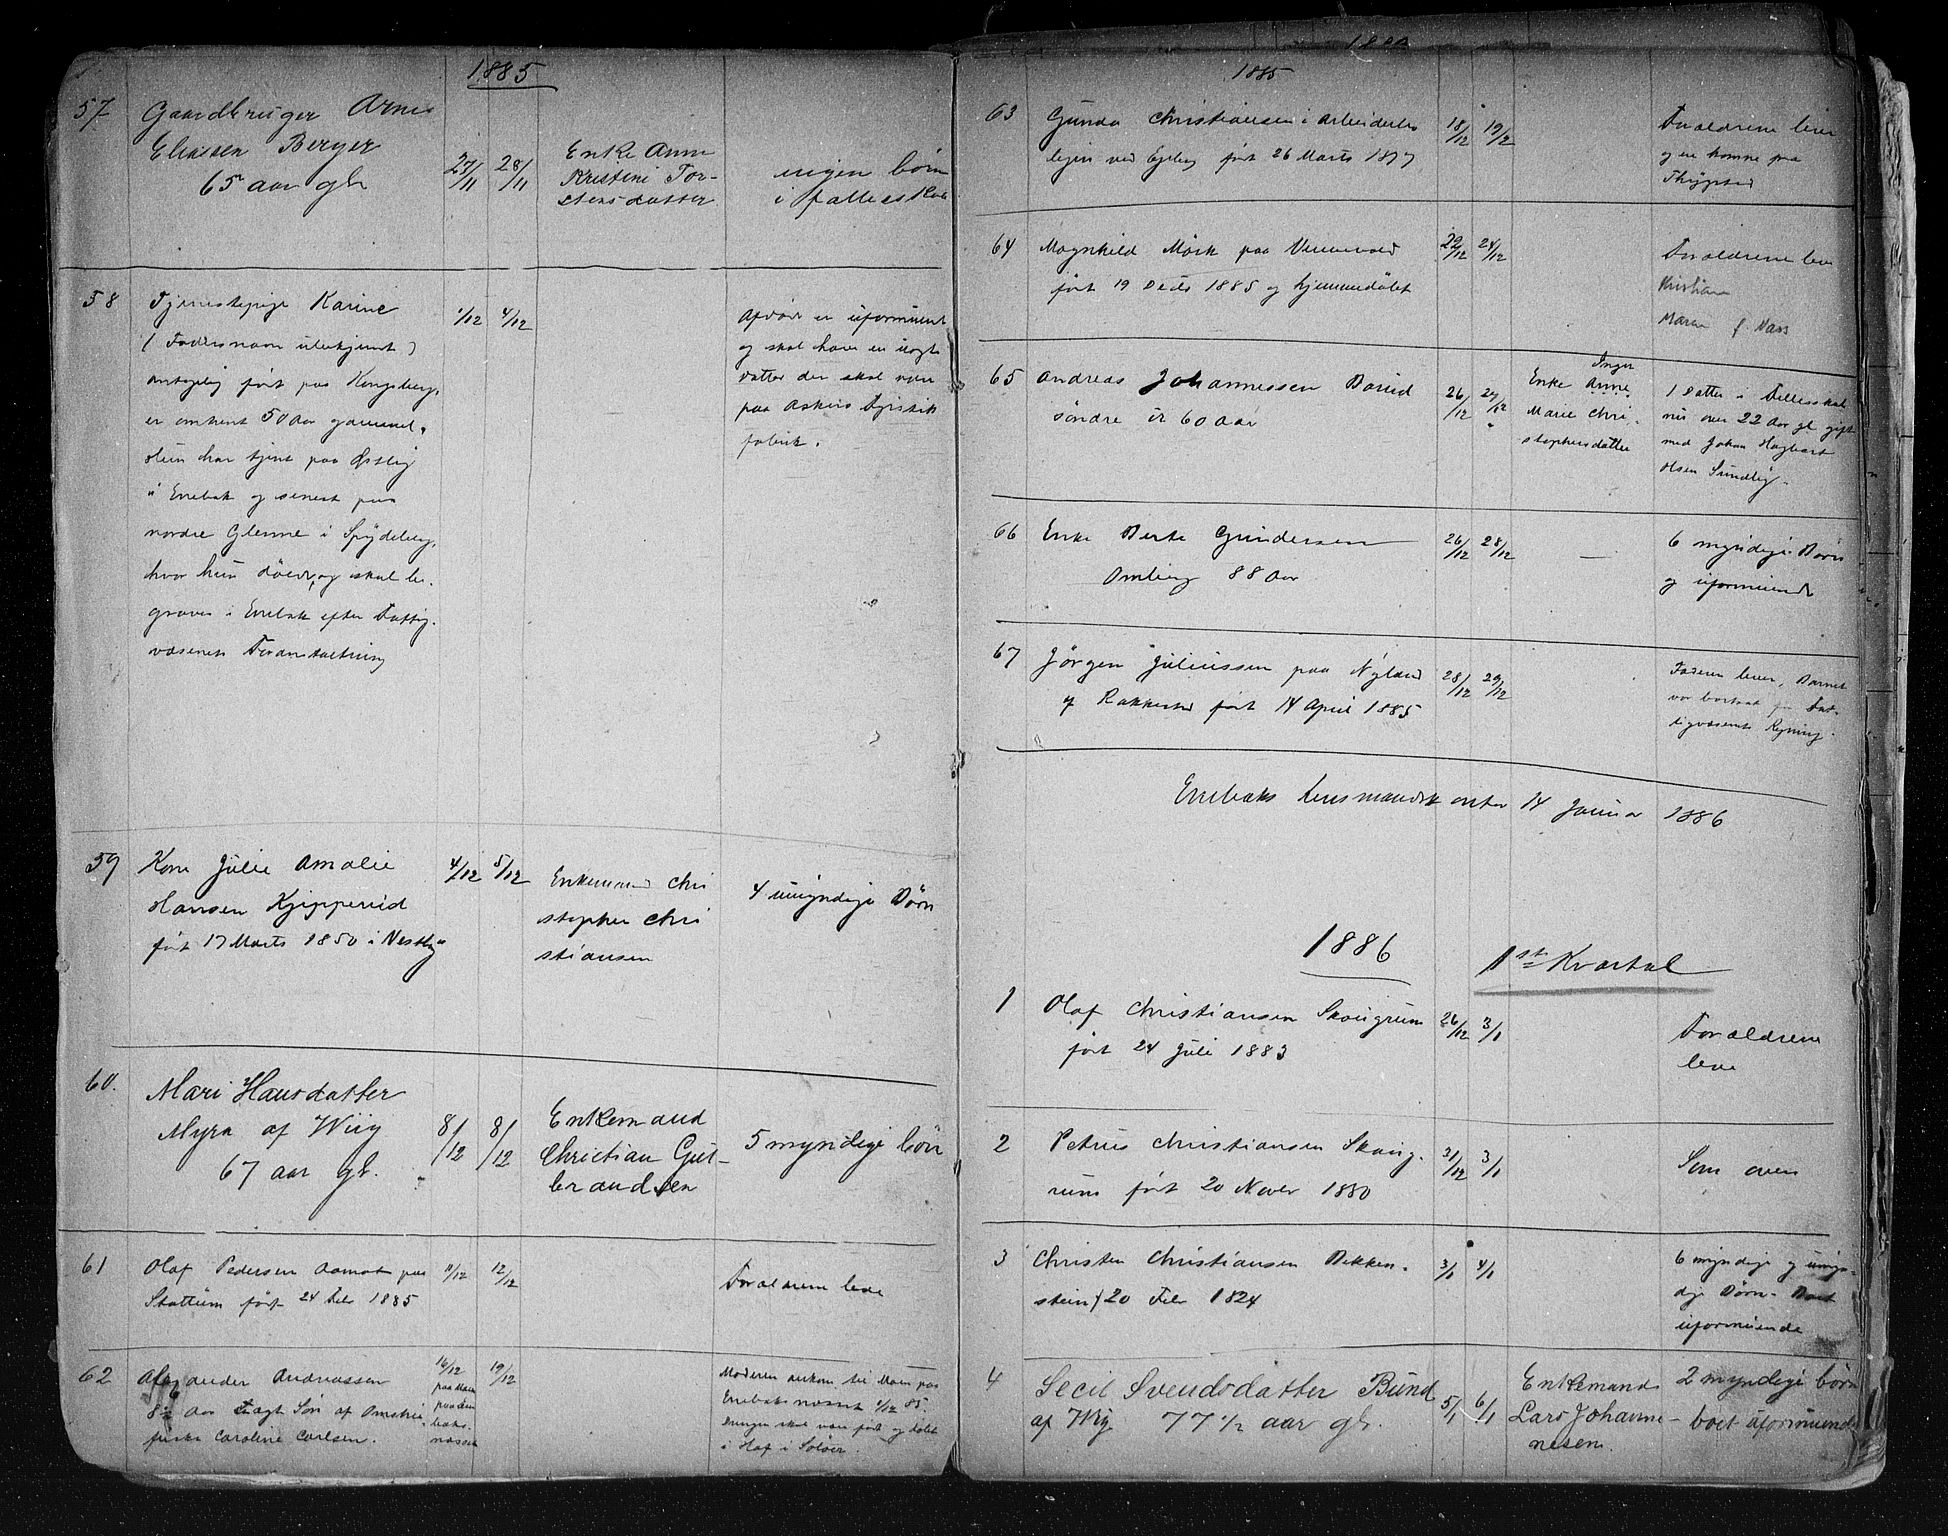 1885
57 Gaardbruger Arne
Eliassen Berger
65 aar gl
27/11 28/11
Enke Anne
Kristine Tor-
stensdatter
ingen børn
i fællesskab
58 Tjenestepige Karine
( Fadersnavn ubekjendt )
antagelig født paa Kongsberg,
er omkrent 50 Aar gammel.
Hun har tjent paa Østby
i Enebak og senest paa
nordre Glenne i Spydeberg,
hvor hun døde, og skal be-
graves i Enebak efter Fattig-
væsenets Foranstaltning
1/12 4/12
Afdøde er uformuent
og skal have en uægte
datter der skal være
paa Askers Fyrstik
fabrik.
59 Kone Julie Amalie
Hansen Kjipperud
født 17 Marts 1850 i Vestby
4/12 5/12
Enkemand Chri
stopher Chri
stiansen
4 umyndige Børn
60. Mari Hansdatter
Myra af Wiig
67 aar gl.
8/12 8/12
Enkemand
Christian Gul-
brandsen
5 myndige børn
61 Olaf Pedersen Aamot paa
Stottum født 24 Feb 1885
11/12 12/12
Forældrene leve
62 Alexander Andreassen
8½ Aar uægt Søn af Omstrei-
ferske Caroline Carlsen.
16/12
paa Moen
paa Ene-
baks-
næsset
19/12
Moderen ankom til Moen paa
Enebaksnæsset 4/12 85.
Drengen skal være født og døbt
i Hof i Solør.
1885
63 Gunda Christiansen i Arbeiderbo
ligen ved Egeberg født 26 Marts 1877
18/12 19/12
Forældrene lever
og ere komne fra
64 Magnhild Mørk paa
født 19 Decb 1885 og hjemmedøbt
22/12 24/12
Forældrene leve
Kristian
Maren f. Næss
65 Andreas Johannessen Borud
søndre ir 60 aar
26/12 27/12
Inger
Enke Anne
Marie Chri-
stophersdatter
1 Datter i Fællesskab
nu over 22 Aar gl gift
med Johan Hagbart
Olsen Sundby.
66 Enke Berte Gundersen
Omberg 88 Aar
26/12 28/12 —
6 myndige Børn
og uformuende
67 Jørgen Juliussen paa Nyland
af Rakkestad født 14 April 1885
28/12 29/12
Faderen lever, Barnet
var bortsat for Fat-
tigvæsenets Regning.
Enebaks Lensmandskontor 14 Januar 1886
1886 1st Kvartal
1 Olaf Christiansen Skougrum
født 24 Juli 1883
26/12 3/1
Forældrene
leve
2 Petrus Christiansen Skoug-
rum født 20 Novbr 1880
31/12 3/1
Som oven
3 Christen Christiansen Bekken-
sten f 20 Feb 1824
3/1 4/1
6 myndige og umyn-
dige Børn. Boet
uformuende
4 Secil Svendsdatter Bund
af Wig 77 1/2 aar gl.
5/1 6/1
Enkemand
Lars Johan-
nesen.
2 myndige børn
boet uformuende